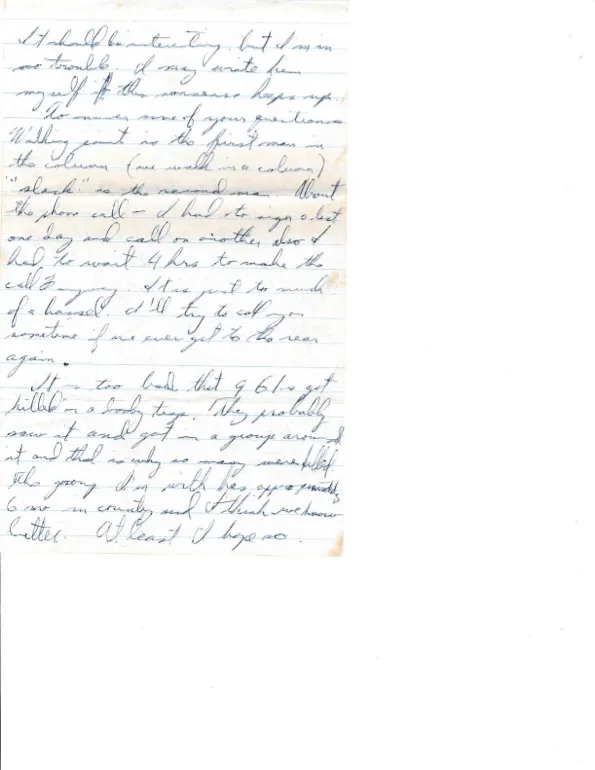 It should be interesting, but I'm in
no trouble. I may write him
myself if this nonsense keeps up.
To answer some of your questions
Walking point is the first man in
the column (we walk in a column)
"slack" is the second man. About
the phone call - I had to sign a list
one day and call on another also I
had to wait 4 hrs to make the
call anyway. It is just too much
of a hassel. I'll try to call you
sometime if we ever get to the rear
again.
It is too bad that 9 G.I.s got
killed in a booby trap. They probably
saw it and got in a group around
it and that is why so many were killed.
The group I'm with has approximately
6 mo in country and I think we know
better. At least I hope so.